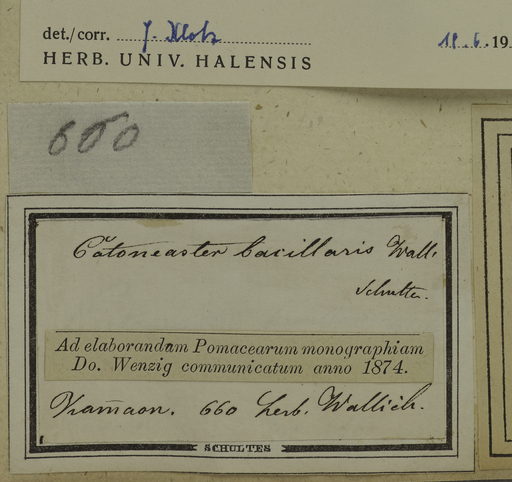 det./corr. G. Klotz 18.6.19
HERB. UNIV. HALENSIS
660
Cotoneaster bacillaris Wall.
Schultes.
Ad elaborandam Pomacearum monographiam
Do. Wenzig communicatum anno 1874.
Kamaon. 660 herb. Wallich.
SCHULTES